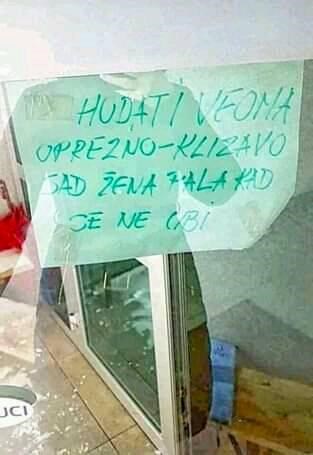 HUDATI VEOMA
OPREZNO-KLIZAVO
SAD ŽENA PALA KAD
SE NE UBI
UCI